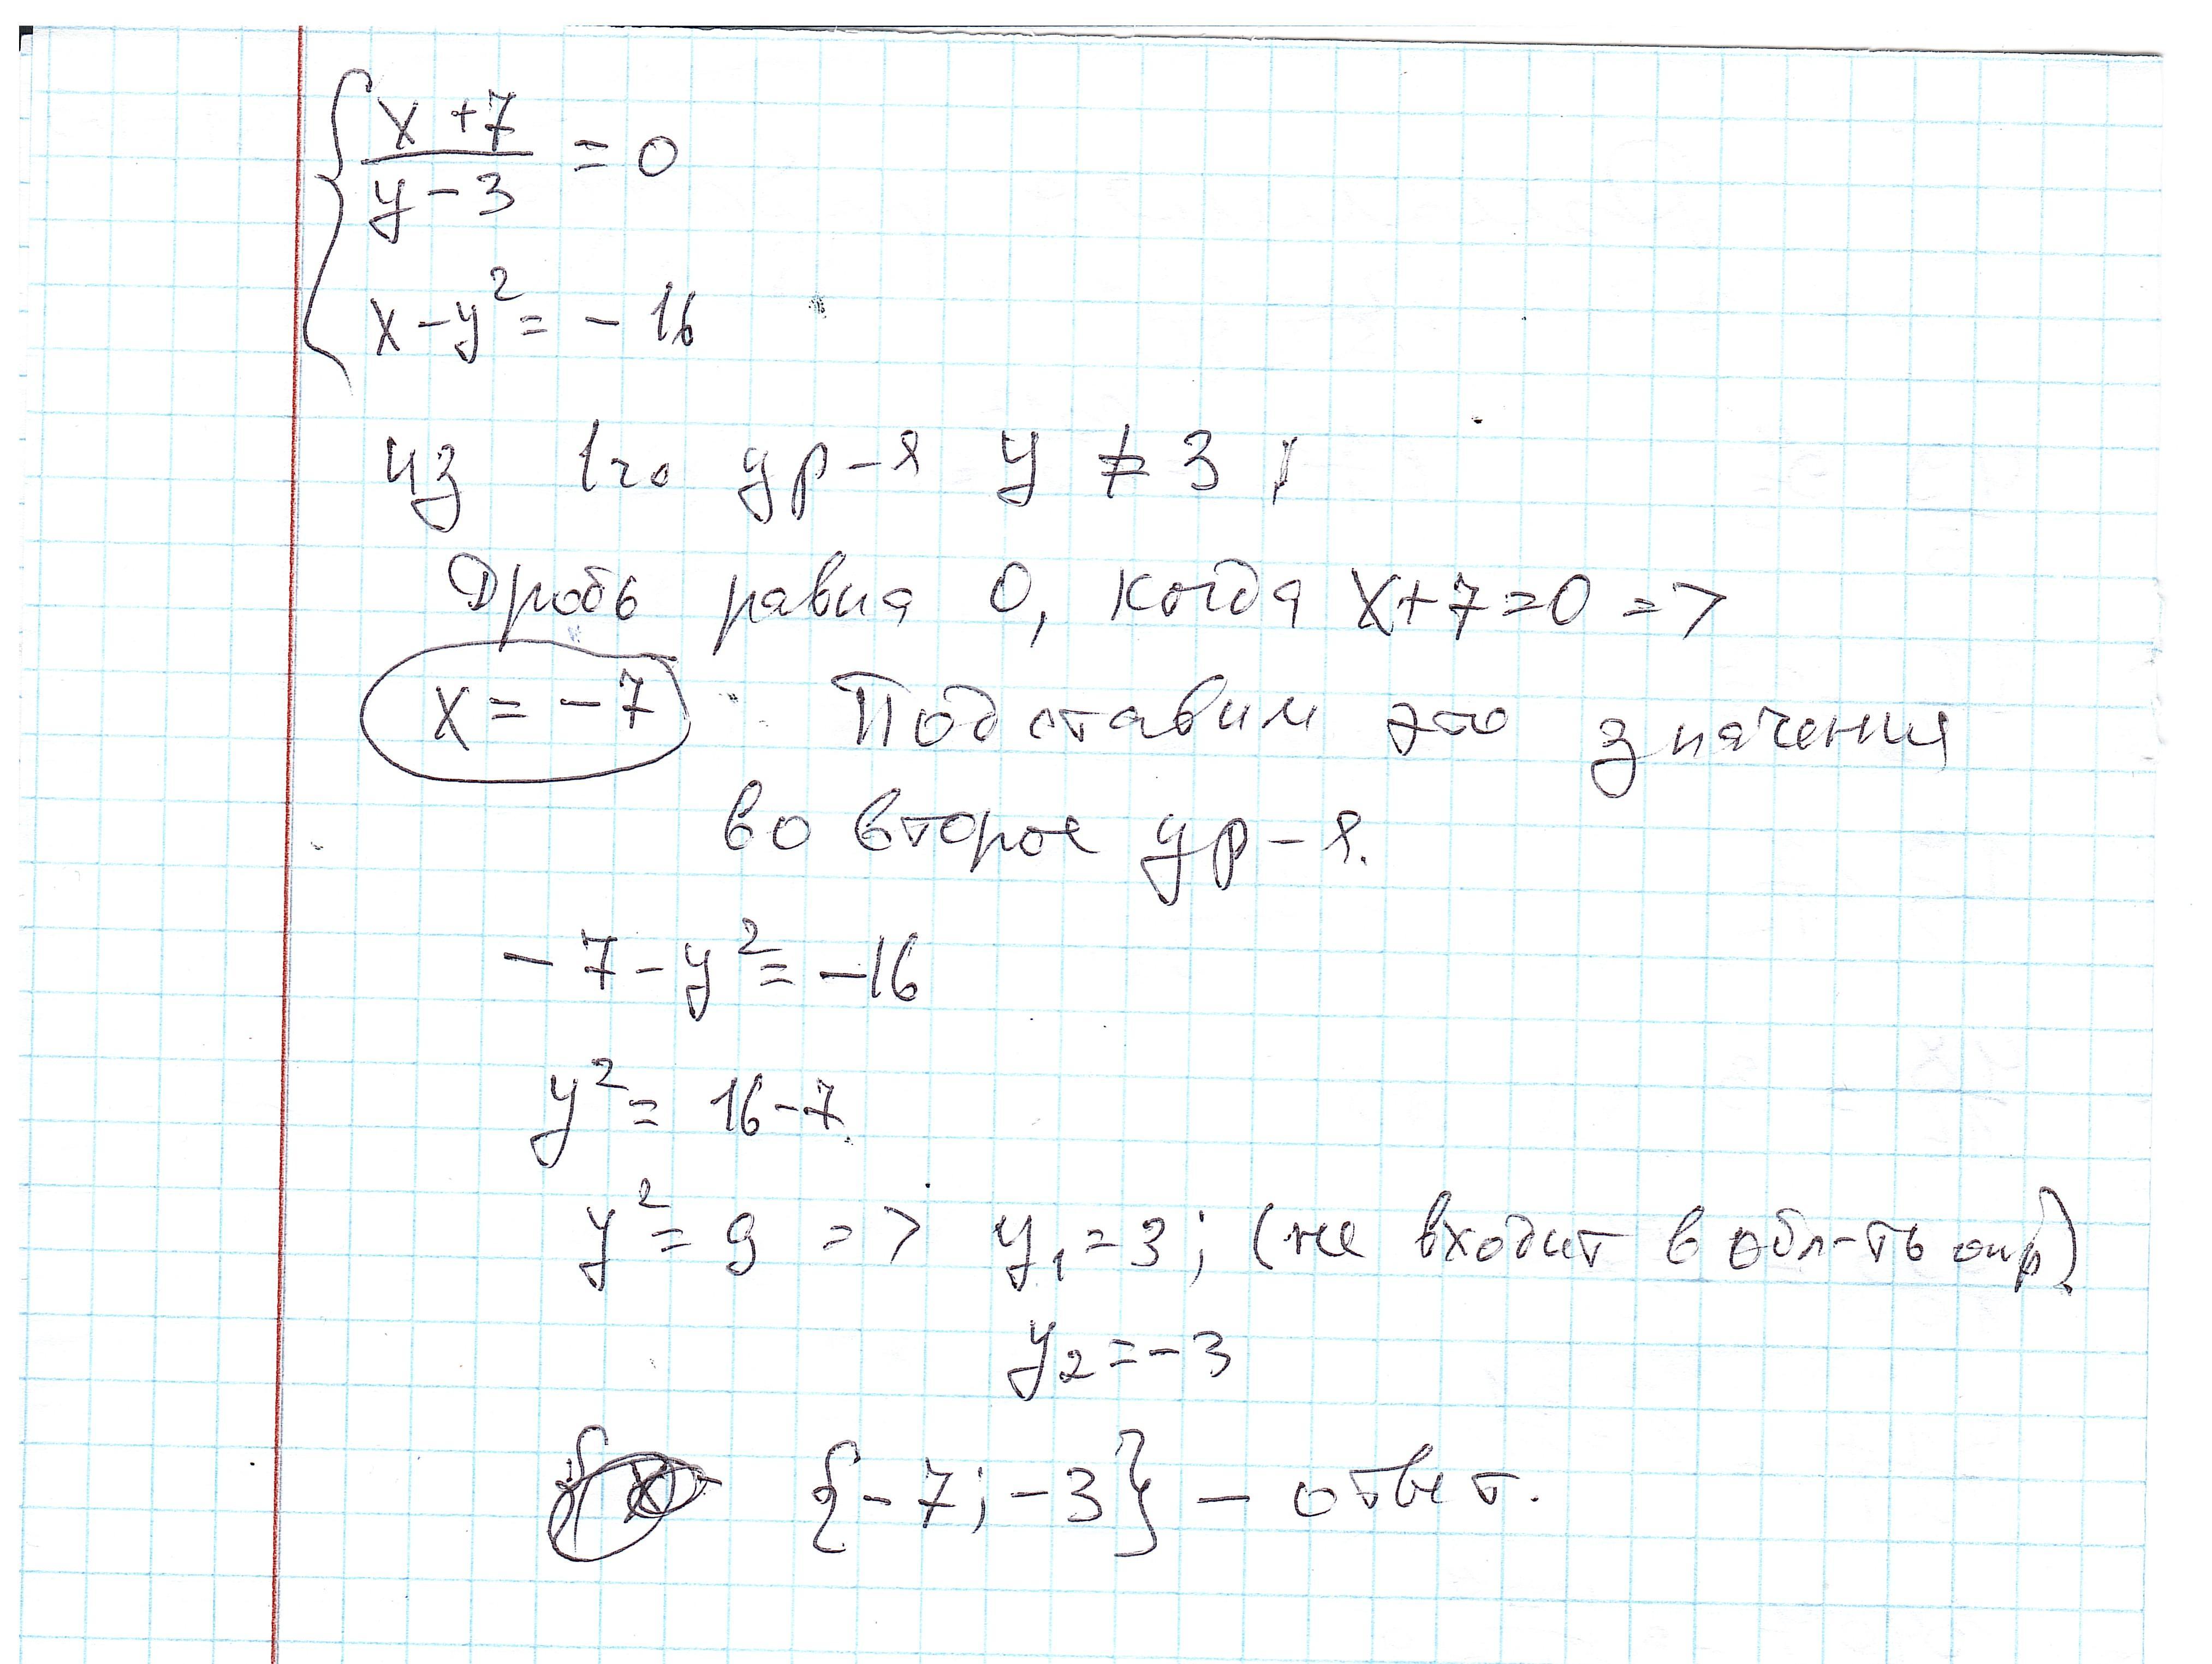 x + 7
y - 3 = 0
x - y² = - 16
из 1го ур-я y ≠ 3 ;
Дробь равна 0, когда x+7=0 =>
x = - 7 Подставим это значения
во второе ур-я.
- 7 - y² = -16
y² = 16-7
y² = 9 => y₁ = 3; (не входит в обл-ть опр)
y₂ = -3
{-7; -3} - ответ.